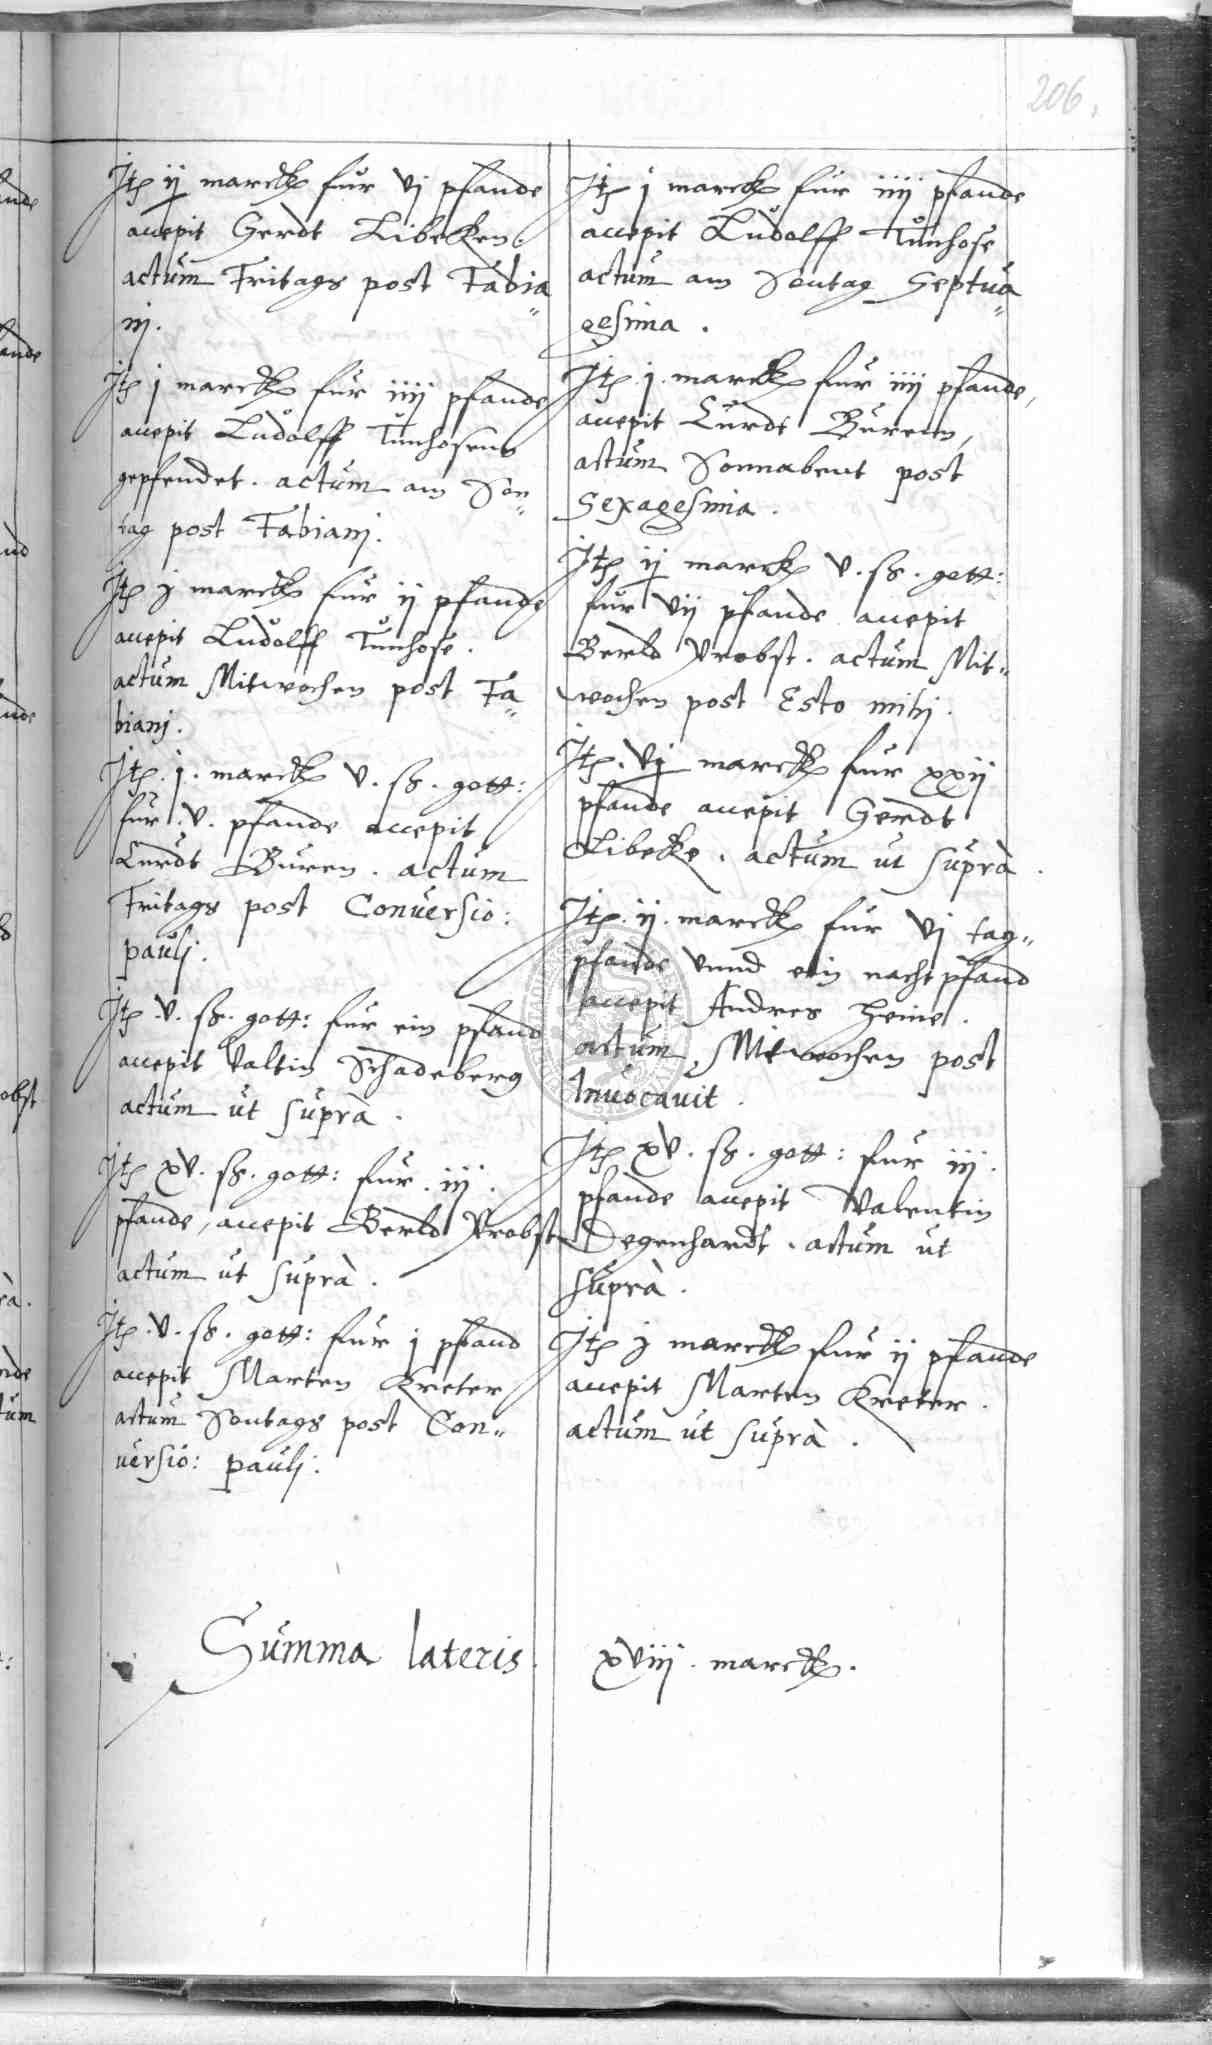 206.
Jtz ij marck fur vj pfande
accepit Gerdt Libecken.
actum Fritags post Fabia„
nj.
Jtz j marck fur iiij pfande
accepit Ludolff Tunhosens
gepfendet. actum am Son„
tag post Fabianj.
Jtz j marck fur ij pfande
accepit Ludolff Tunhose.
actum Mitwochen post Fa„
bianj.
Jtz. j. marck v. ß. gott:
fur .v. pfande accepit
Curdt Buren. actum
Fritags post Conuersio:
paulj.
Jtz .v. ß. gott: fur ein pfand
accepit Valtin Schadeberg
actum ut suprà.
Jtz xv. ß. gott: fur .iij.
pfande, accepit Berld Probst
actum ut suprà.
Jtz .v. ß. gott: fur j pfand
accepit Marten Kreter
actum Sontags post Con„
uersio: paulj.
Jtz j marck fur iiij pfande
accepit Ludolff Tunhose
actum am Sontag Septua„
gesima.
Jtz .j. marck fur iiij pfande,
accepit Curdt Buren,
actum Sonnabent post
Sexagesima.
Jtz ij marck v. ß. gott:
fur vij pfande accepit
Berld Probst. actum Mit„
wochen post Esto mihj.
Jtz. vj marck fur xxij
pfande accepit Gerdt
Libecke. actum ut suprà.
Jtz. ij. marck fur vj tag„
pfande vnnd ein nacht pfand
accepit Andres Heine.
actum Mitwochen post
Inuocauit.
Jtz xv. ß. gott: fur iij.
pfande accepit Valentin
Degenhardt. actum ut
suprà.
Jtz j marck fur ij pfande
accepit Marten Kreter.
actum ut suprà.
Summa lateris. xviij. marck.